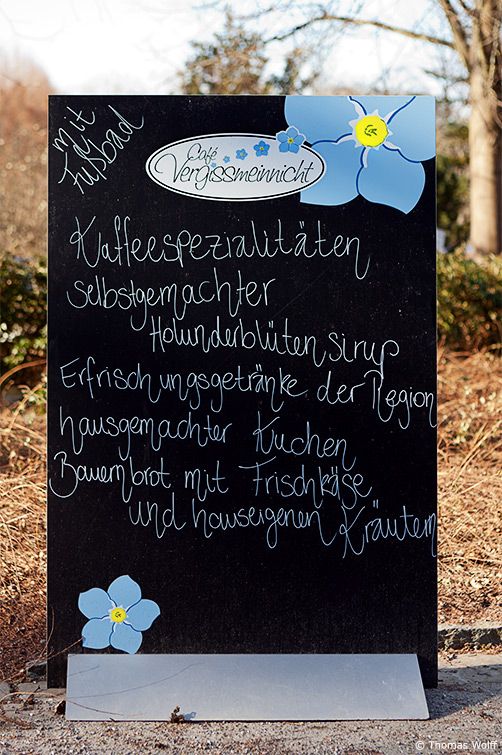 mit
Fußbad
Café
Vergissmeinnicht
Kaffeespezialitäten
selbstgemachter
Holunderblüten sirup
Erfrischungsgetränke der Region
hausgemachter Kuchen
Bauernbrot mit Frischkäse
und hauseigenen Kräutern
© Thomas Wolf